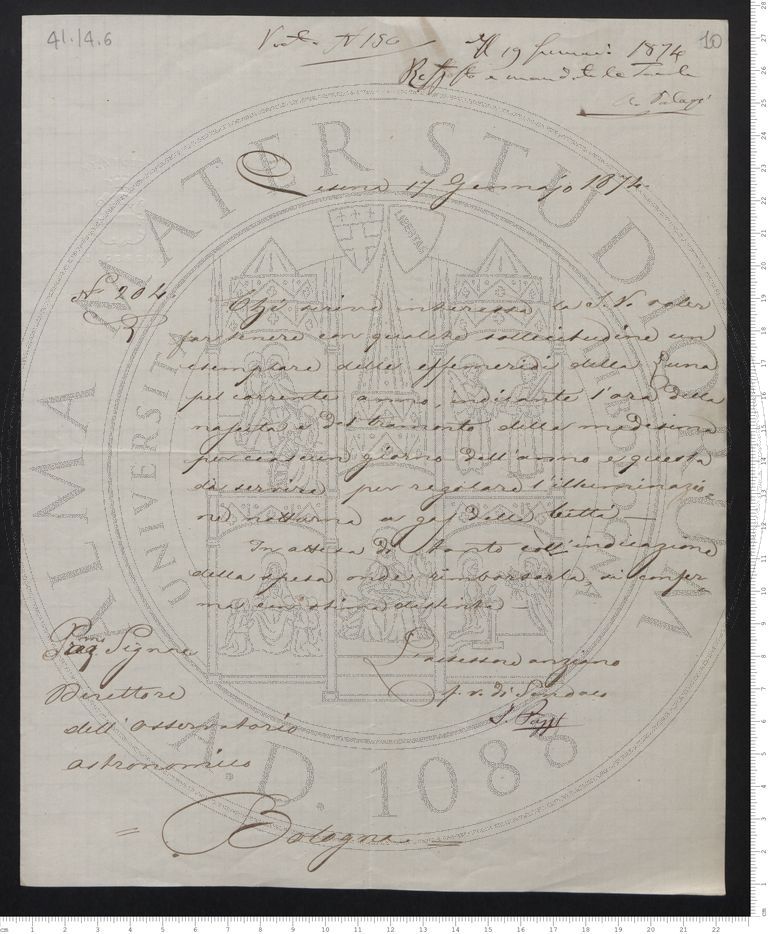 41.14.6
10
N 156
19 Gennaio 1874
e mandate le Tavole
A. Palagi
Cesena 17 Gennajo 1874.
N° 204.
Chi scrive interessa la S. V. voler
far tenere con qualche sollecitudine un
esemplare delle effemeridi della Luna
pel corrente anno, indicante l'ora della
nascita e del tramonto della medesima
per ciascun giorno dell'anno e questa
di servire per regolare l'illuminazio=
ne notturna a gaz della Città.
In attesa di tanto coll'indicazione
della spesa onde rimborsarla, si confer=
ma con stima distinta
L'assessore anziano
f. f. di Sindaco
Signore
Direttore
dell'Osservatorio
astronomico
= Bologna =
ALMA MATER STUDIORUM
UNIVERSITÀ
LIBERTAS
A.D. 1088